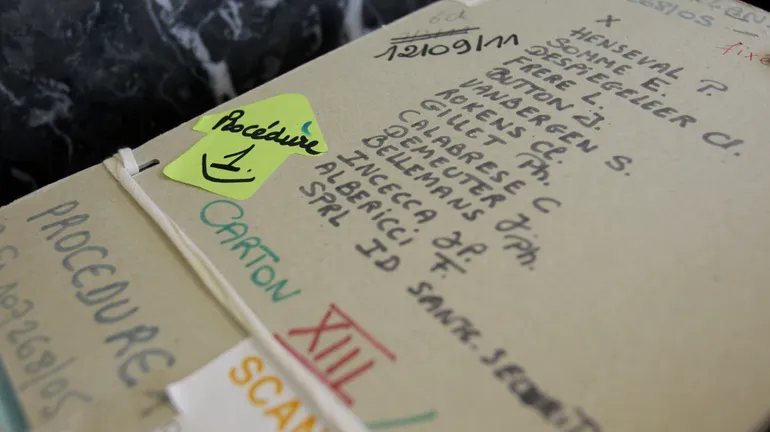 12/09/11
X
HENSEVAL P.
SOMME E.
DESPIEGELEER Cl.
FRERE L.
BUTTON J.
VANBERGEN S.
ROKENS Cl.
GILLET Ph.
CALABRESE C
DEMEUTER J.Ph.
BELLEMANS
INCECCA JP.
ALBERICCI F.
SPRL ID SANTE. SECURIT
Procédure
1.
CARTON
XIII
PROCEDURE 1
107268/05
SCAN
268/05
fixe